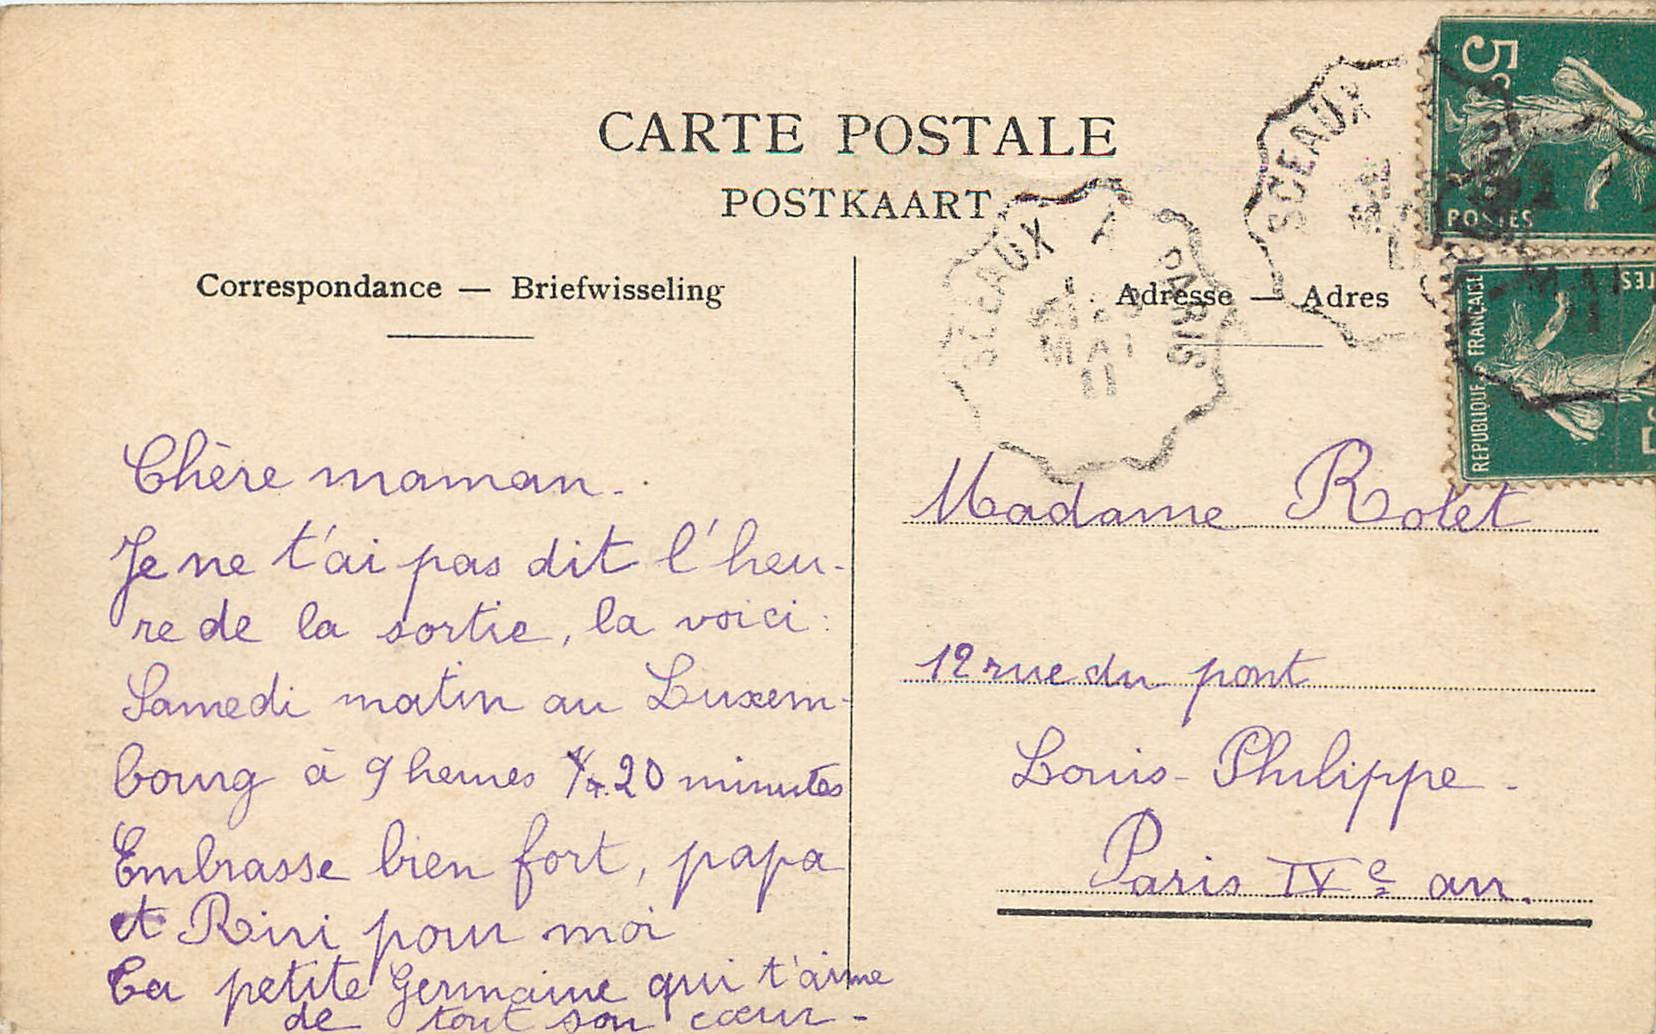 CARTE POSTALE
POSTKAART
Correspondance — Briefwisseling
Adresse — Adres
SCEAUX A PARIS
MAI
11
SCEAUX
5c
POSTES
REPUBLIQUE FRANÇAISE
Chère maman.
Je ne t'ai pas dit l'heu-
re de la sortie, la voici:
Samedi matin au Luxem-
bourg à 9 heures 20 minutes
Embrasse bien fort, papa
et Riri pour moi
Ta petite Germaine qui t'aime
de tout son cœur-
Madame Rolet
12 rue du pont
Louis-Philippe-
Paris IVe arr.